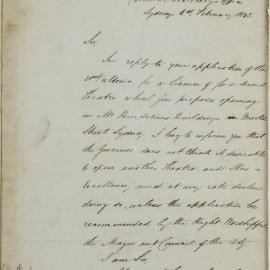 Sydney 6th February 1843
Sir
In reply to your application of the
30th ultimo for a license for a
Theatre which you propose opening
in Mr Buildings in
Street Sydney I beg to inform you that
the Governor does not think it desirable
to open another Theatre, and His
Excellency must at any rate decline
doing so, unless the application be
recommended by the Right Worshipful
the Mayor and Council of the City
I am Sir,